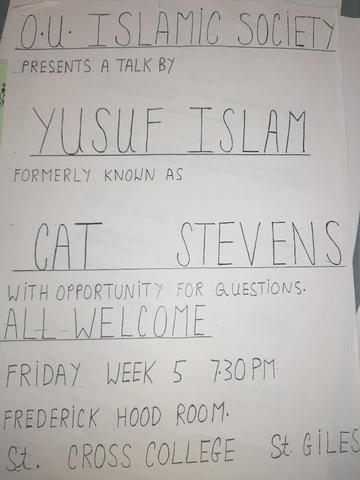 O.U. ISLAMIC SOCIETY
PRESENTS A TALK BY
YUSUF ISLAM
FORMERLY KNOWN AS
CAT STEVENS
WITH OPPORTUNITY FOR QUESTIONS.
ALL WELCOME
FRIDAY WEEK 5 7.30PM
FREDERICK HOOD ROOM.
St. CROSS COLLEGE St. GILES